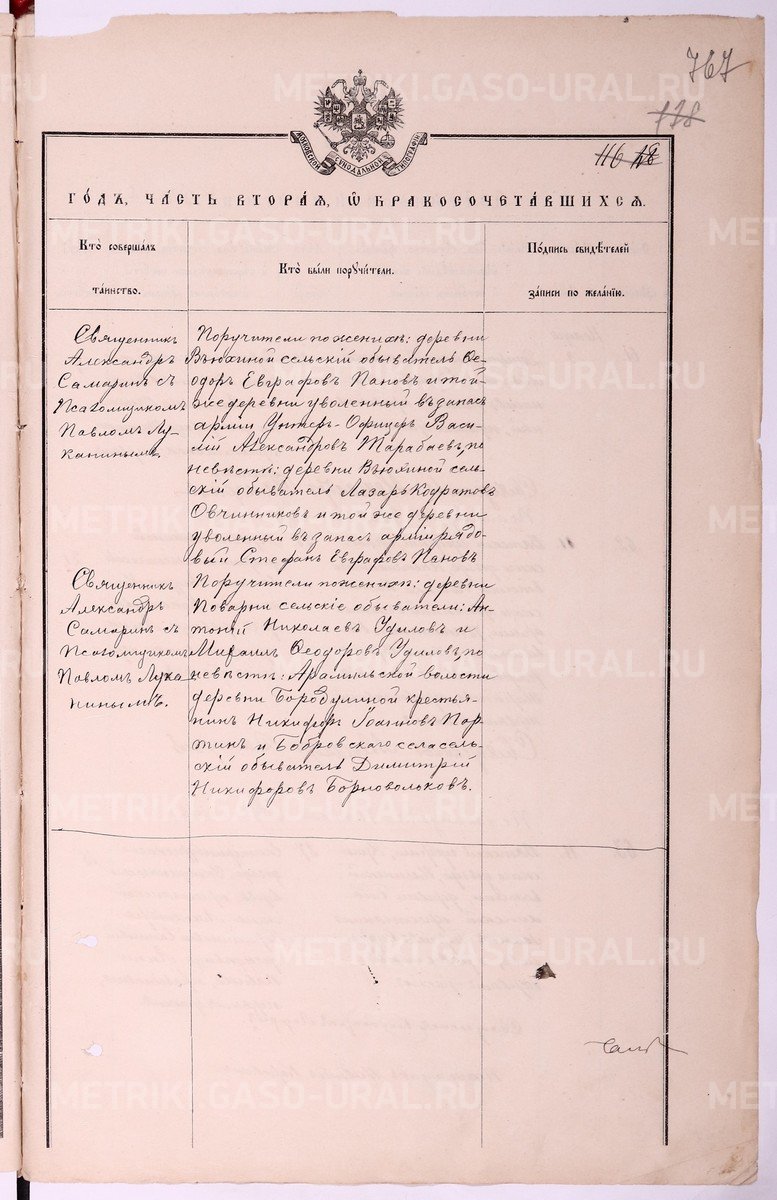 767
118
116
МОСКОВСКОЙ СѴНОДАЛЬНОЙ ТИПОГРАФІИ
ГО́ДЪ, ЧА́СТЬ ВТОРА́Я, Ѽ БРАКОСОЧЕТА́ВШИХСЯ.
Кто̀ совершалъ
та́инство.
Кто̀ бы́ли порꙋчи́тели.
По́дпись свидѣ́телей
за́писи по жела́нію.
Священникъ
Александръ
Самаринъ съ
Псаломщикомъ
Павломъ Лу-
канинымъ.
Поручители по женихѣ: деревни
Вьюхиной сельскій обыватель Ѳе-
одоръ Евграфовъ Пановъ и той-
же деревни уволенный въ запасъ
арміи Унтеръ-Офицеръ Васи-
лій Александровъ Тарабаевъ, по
невѣстѣ: деревни Вьюхиной сель-
скій обыватель Лазарь Кодратовъ
Овчинниковъ и той же деревни
уволенный въ запасъ арміи рядо-
вый Стефанъ Евграфовъ Пановъ
Священникъ
Александръ
Самаринъ съ
Псаломщикомъ
Павломъ Лука-
нинымъ.
Поручители по женихѣ: деревни
Поварни сельскіе обыватели: Ан-
тоній Николаевъ Удиловъ и
Михаилъ Ѳеодоровъ Удиловъ, по
невѣстѣ: Арамильской волости
деревни Бородулиной крестья-
нинъ Никифоръ Іоанновъ Пор-
тинъ и Бобровскаго села сель-
скій обыватель Димитрій
Никифоровъ Борноволоковъ.
METRIKI.GASO-URAL.RU